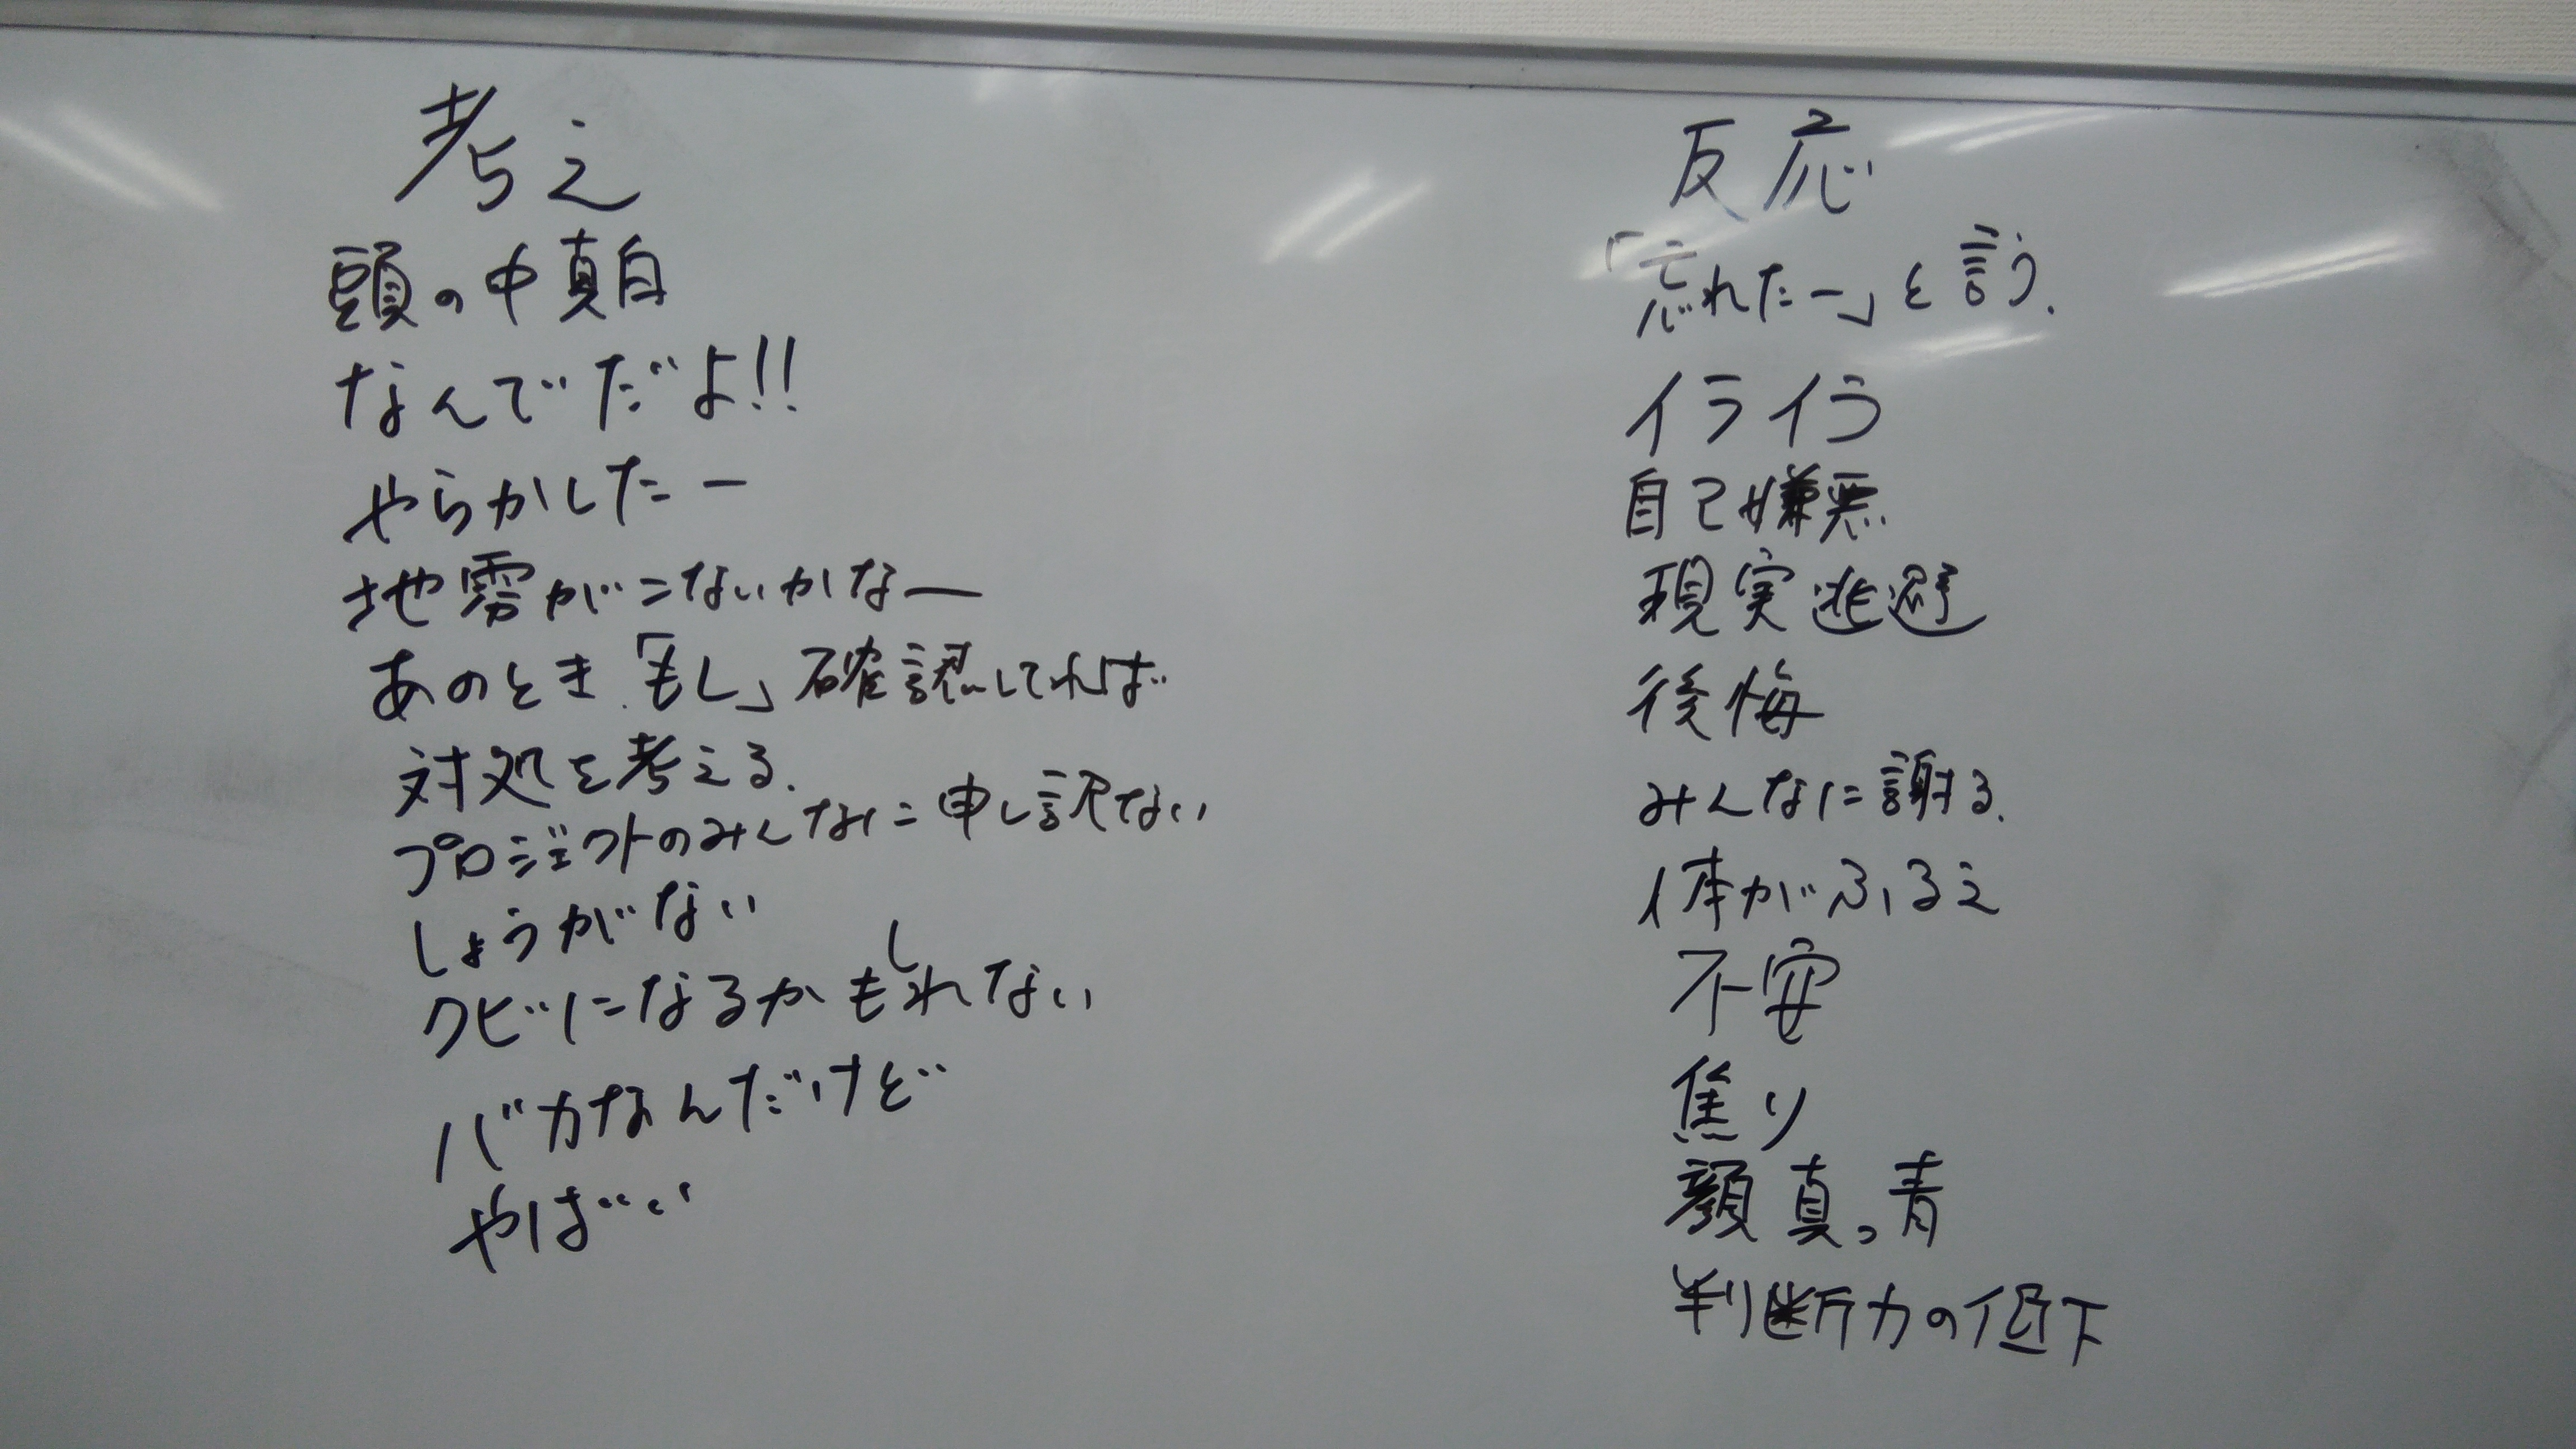 考え
頭の中真白
なんでだよ!!
やらかしたー
地震がこないかなー
あのとき「もし」確認してれば
対処を考える.
プロジェクトのみんなに申し訳ない
しょうがない
クビになるかもしれない
バカなんだけど
やばい
反応
「忘れたー」と言う.
イライラ
自己嫌悪
現実逃避
後悔
みんなに謝る.
体がふるえ
不安
焦り
顔真っ青
判断力の低下